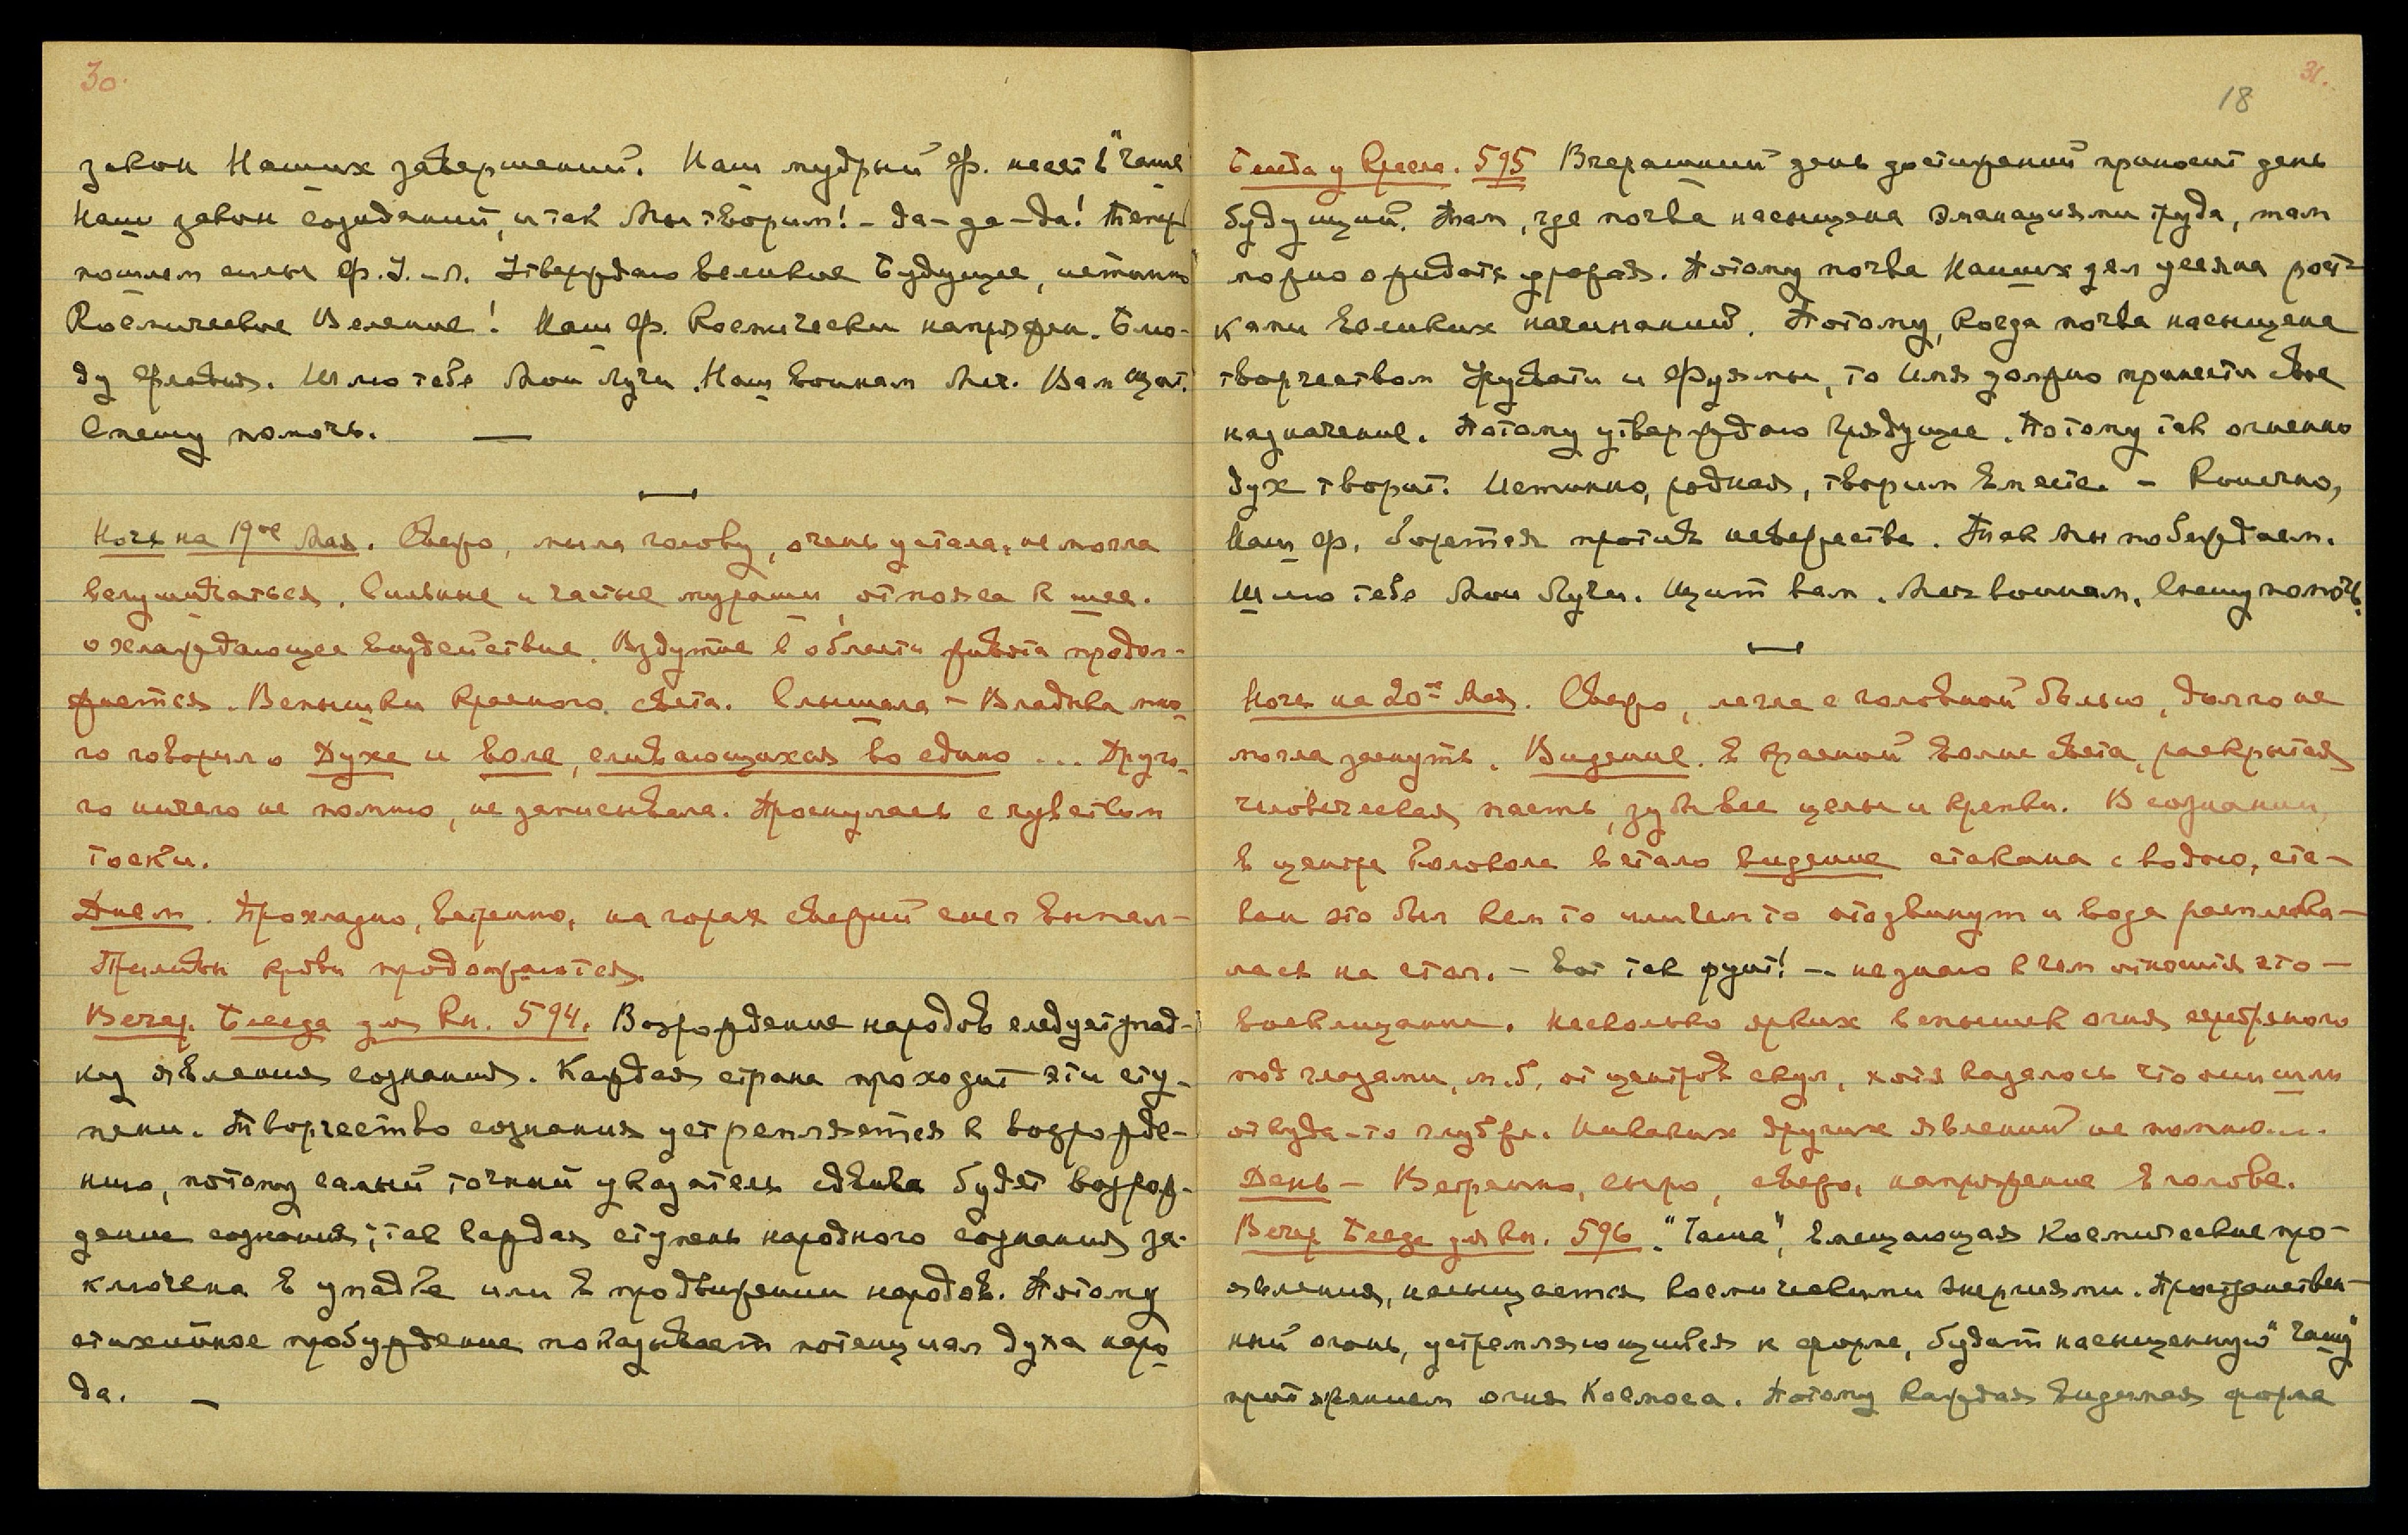 30.
закон Наших завершений. Наш мудрый Ф. несет в "Чаше
Наш закон созиданий, и так Мы творим! – Да – да – да! Теперь
пошлем силы Ф. У. – л. Утверждаю великое Будущее, истинно
Космическое Веление! Наш Ф. Космически напряжен. Блю-
ду Ф. Шлю тебе Мои Лучи. Наш воинам Меч. Вам щит.
Спешу помочь. —
Ночь на 19ое Мая. Свежо, мыла голову, очень устала, не могла
вслушиваться. Сильные и частые мураши от пояса к шее.
охлаждающее воздействие. Вздутие в области живота продол-
жается. Вспышки красного света. Слышала – Владыка мно-
го говорил о Духе и воле, сливающихся во едино ... Друго-
го ничего не помню, не записывала. Проснулась с чувством
тоски.
Днем. Прохладно, ветрено, на горах свежий снег выпал –
Приливы крови продолжаются.
Вечер. Беседа для Кн. 594. Возрождение народов следует рад-
ку явления сознания. Каждая страна проходит эти сту-
пени. Творчество сознания устремляется к возрожде-
нию, потому самый точный указатель сдвига будет возрож-
дение сознания; так каждая ступень народного сознания за-
ключена в упадке или в продвижении народов. Потому
стихийное пробуждение показывает потенциал духа наро-
да. —
31.
18
Беседа у Кресла. 595 Вчерашний день достижений приносит день
будущий. Там, где почва насыщена эманациями труда, там
можно ожидать урожая. Потому почва Наших дел усеяна рост-
ками великих начинаний. Потому, когда почва насыщена
творчеством Урусвати и Фуямы, то Имя должно принести свое
назначение. Потому утверждаю грядущее. Потому так огненно
дух творит. Истинно, родная, творим вместе. – Конечно,
Наш Ф. борется против невежества. Так мы побеждаем.
Шлю тебе Мои Лучи. Щит вам. Меч воинам. Спешу помочь.
Ночь на 20е Мая. Свежо, легла с головной болью, долго не
могла заснуть. Видение. В красной волне света, раскрытая
человеческая пасть, зубы все целы и крепки. В сознании,
в центре Колокола встало видение стакана с водою, ста-
кан это был кем то или чем то отодвинут и вода расплеска-
лась на стол. – Вот так фунт! –. не знаю к чем относится это –
восклицание. Несколько ярких вспышек огня серебряного
под глазами, м. б. от центров скул, хотя казалось что они шли
откуда-то глубже. Никаких других явлений не помню...
День – Ветрено, сыро, свежо, напряжение в голове.
Вечер Беседа для Кн. 596. "Чаша", вмещающая Космические про-
явления, насыщается космическими энергиями. Пространствен-
ный огонь, устремляющийся к форме, будит насыщенную "Чашу"
притяжением огня Космоса. Потому каждая видимая форма